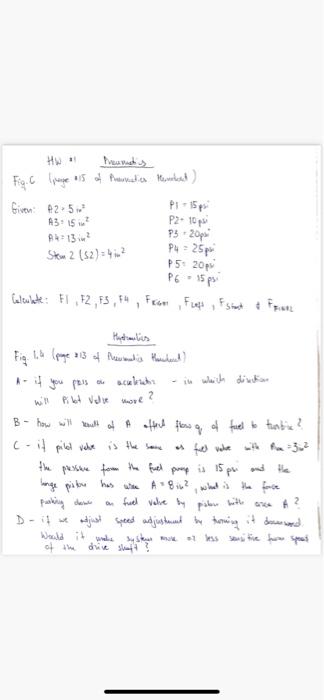 HW #1 Pneumatics
Fig. C (page #15 of Pneumatics Handout)
Given: A2 = 5 in² P1 = 15 psi
A3 = 15 in² P2 = 10 psi
A4 = 13 in² P3 = 20 psi
Stem 2 (S2) = 4 in² P4 = 25 psi
P5 = 20 psi
P6 = 15 psi
Calculate: F1, F2, F3, F4, F RIGHT, F LEFT, F Start &
Hydraulics
Fig. 1.4 (page #13 of Pneumatic Handout)
A - if you press on accelerator - in which direction
will Pilot Valve move?
B - how will result of A affect flow of fuel to turbine?
C - if pilot valve is the same as fuel valve with = 3in²
the pressure from the fuel pump is 15 psi and the
large piston has area A = 8 in², what is the force
pushing down on fuel valve by piston with area A?
D - if we adjust speed adjustment by turning it downward.
Would it make system more or less sensitive from speed
of the drive shaft?